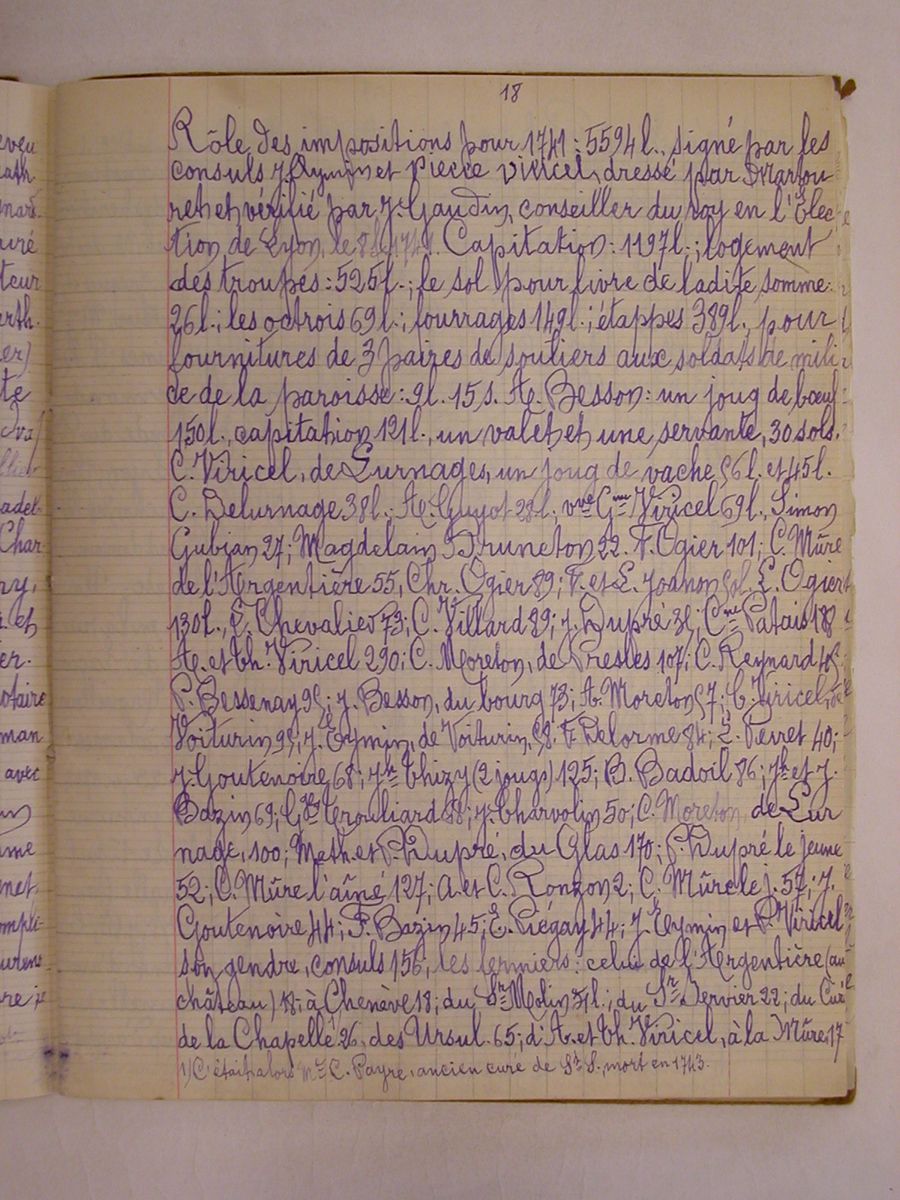 18
Rôle des impositions pour 1741 : 5594 l., signé par les
consuls J. Eymin et Pierre Viricel, dressé par Martou
ret et vérifié par J. Gaudin, conseiller du roy en l'Élec
tion de Lyon, le Capitation : 1197 l. ; logement
des troupes : 525 l. ; le sol pour livre de ladite somme :
26 l. ; les octrois 69 l. ; fourrages 149 l. ; étappes 389 l., pour
fournitures de 3 paires de souliers aux soldats de mili
ce de la paroisse : 9 l. 15 s. A. Besson : un joug de bœuf
150 l., capitation 121 l., un valet et une servante, 30 sols.
C. Viricel, de Lurnages, un joug de vache 56 l. et 45 l.
C. Delurnage 38 l. ; A. Guyot 28 l. ; vve Gme Viricel 69 l., Simon
Gubian 27 ; Magdelain Bruneton 22. F. Ogier 101 ; C. Mûre
de l'Argentière 55, Chr. Ogier 89 ; F. et L. Joanon L. Ogier
130 l., E. Chevalier 73 ; C. Villard 39 ; J. Dupré 31, Cme Patais 188
A. et Th. Viricel 290 ; C. Moreton, de Presles 107 ; C. Reynard
P. Bessenay 95 ; J. Besson, du bourg 73 ; A. Moreton 57 ; C. Viricel, de
Voiturin 95 ; J. Eymin, de Voiturin, 58. F. Delorme 84 ; E. Perret 40 ;
J. Goutenoire 68 ; Jh Thizy (2 jougs) 125 ; B. Badoil 86 ; Jh et J.
Bazin 69 ; Trouliard 88 ; J. Charvolin 50 ; C. Moreton, de Lur
nage, 100 ; Math. et P. Dupré, du Glas 170 ; P. Dupré le jeune
52 ; C. Mûre l'aîné 127 ; A. et C. Ronzon 2 ; C. Mûre le j. 57 ; J.
Goutenoire 44 ; F. Bazin 45 ; E. Piégay 44 ; J. Eymin et P. Viricel
son gendre, consuls 156 ; les fermiers : celui de l'Argentière (au
château) à Chenève 18 ; du Sr Molin 31 l. ; du Sr Dervier 22 ; du Curé
de la Chapelle 26, des Ursul. 65 ; d'A. et Th. Viricel, à la Mûre, 17
1) C'était alors C. Payre, ancien curé de St S. mort en 1743.